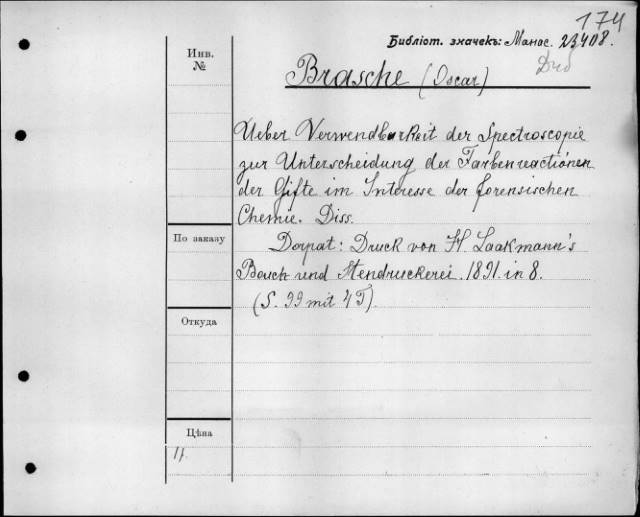 174
Библіот. значекъ: Манас. 23408.
Инв.
№
Brasche (Oscar)
Ueber Verwendbarkeit der Spectroscopie
zur Unterscheidung der Farbenreactionen
der Gifte im Interesse der forensischen
Chemie. Diss.
По заказу
Dorpat: Druck von H. Laakmann's
Buch und Stendruckerei. 1891. in 8.
(S. 99 mit 4 T).
Откуда
Цѣна